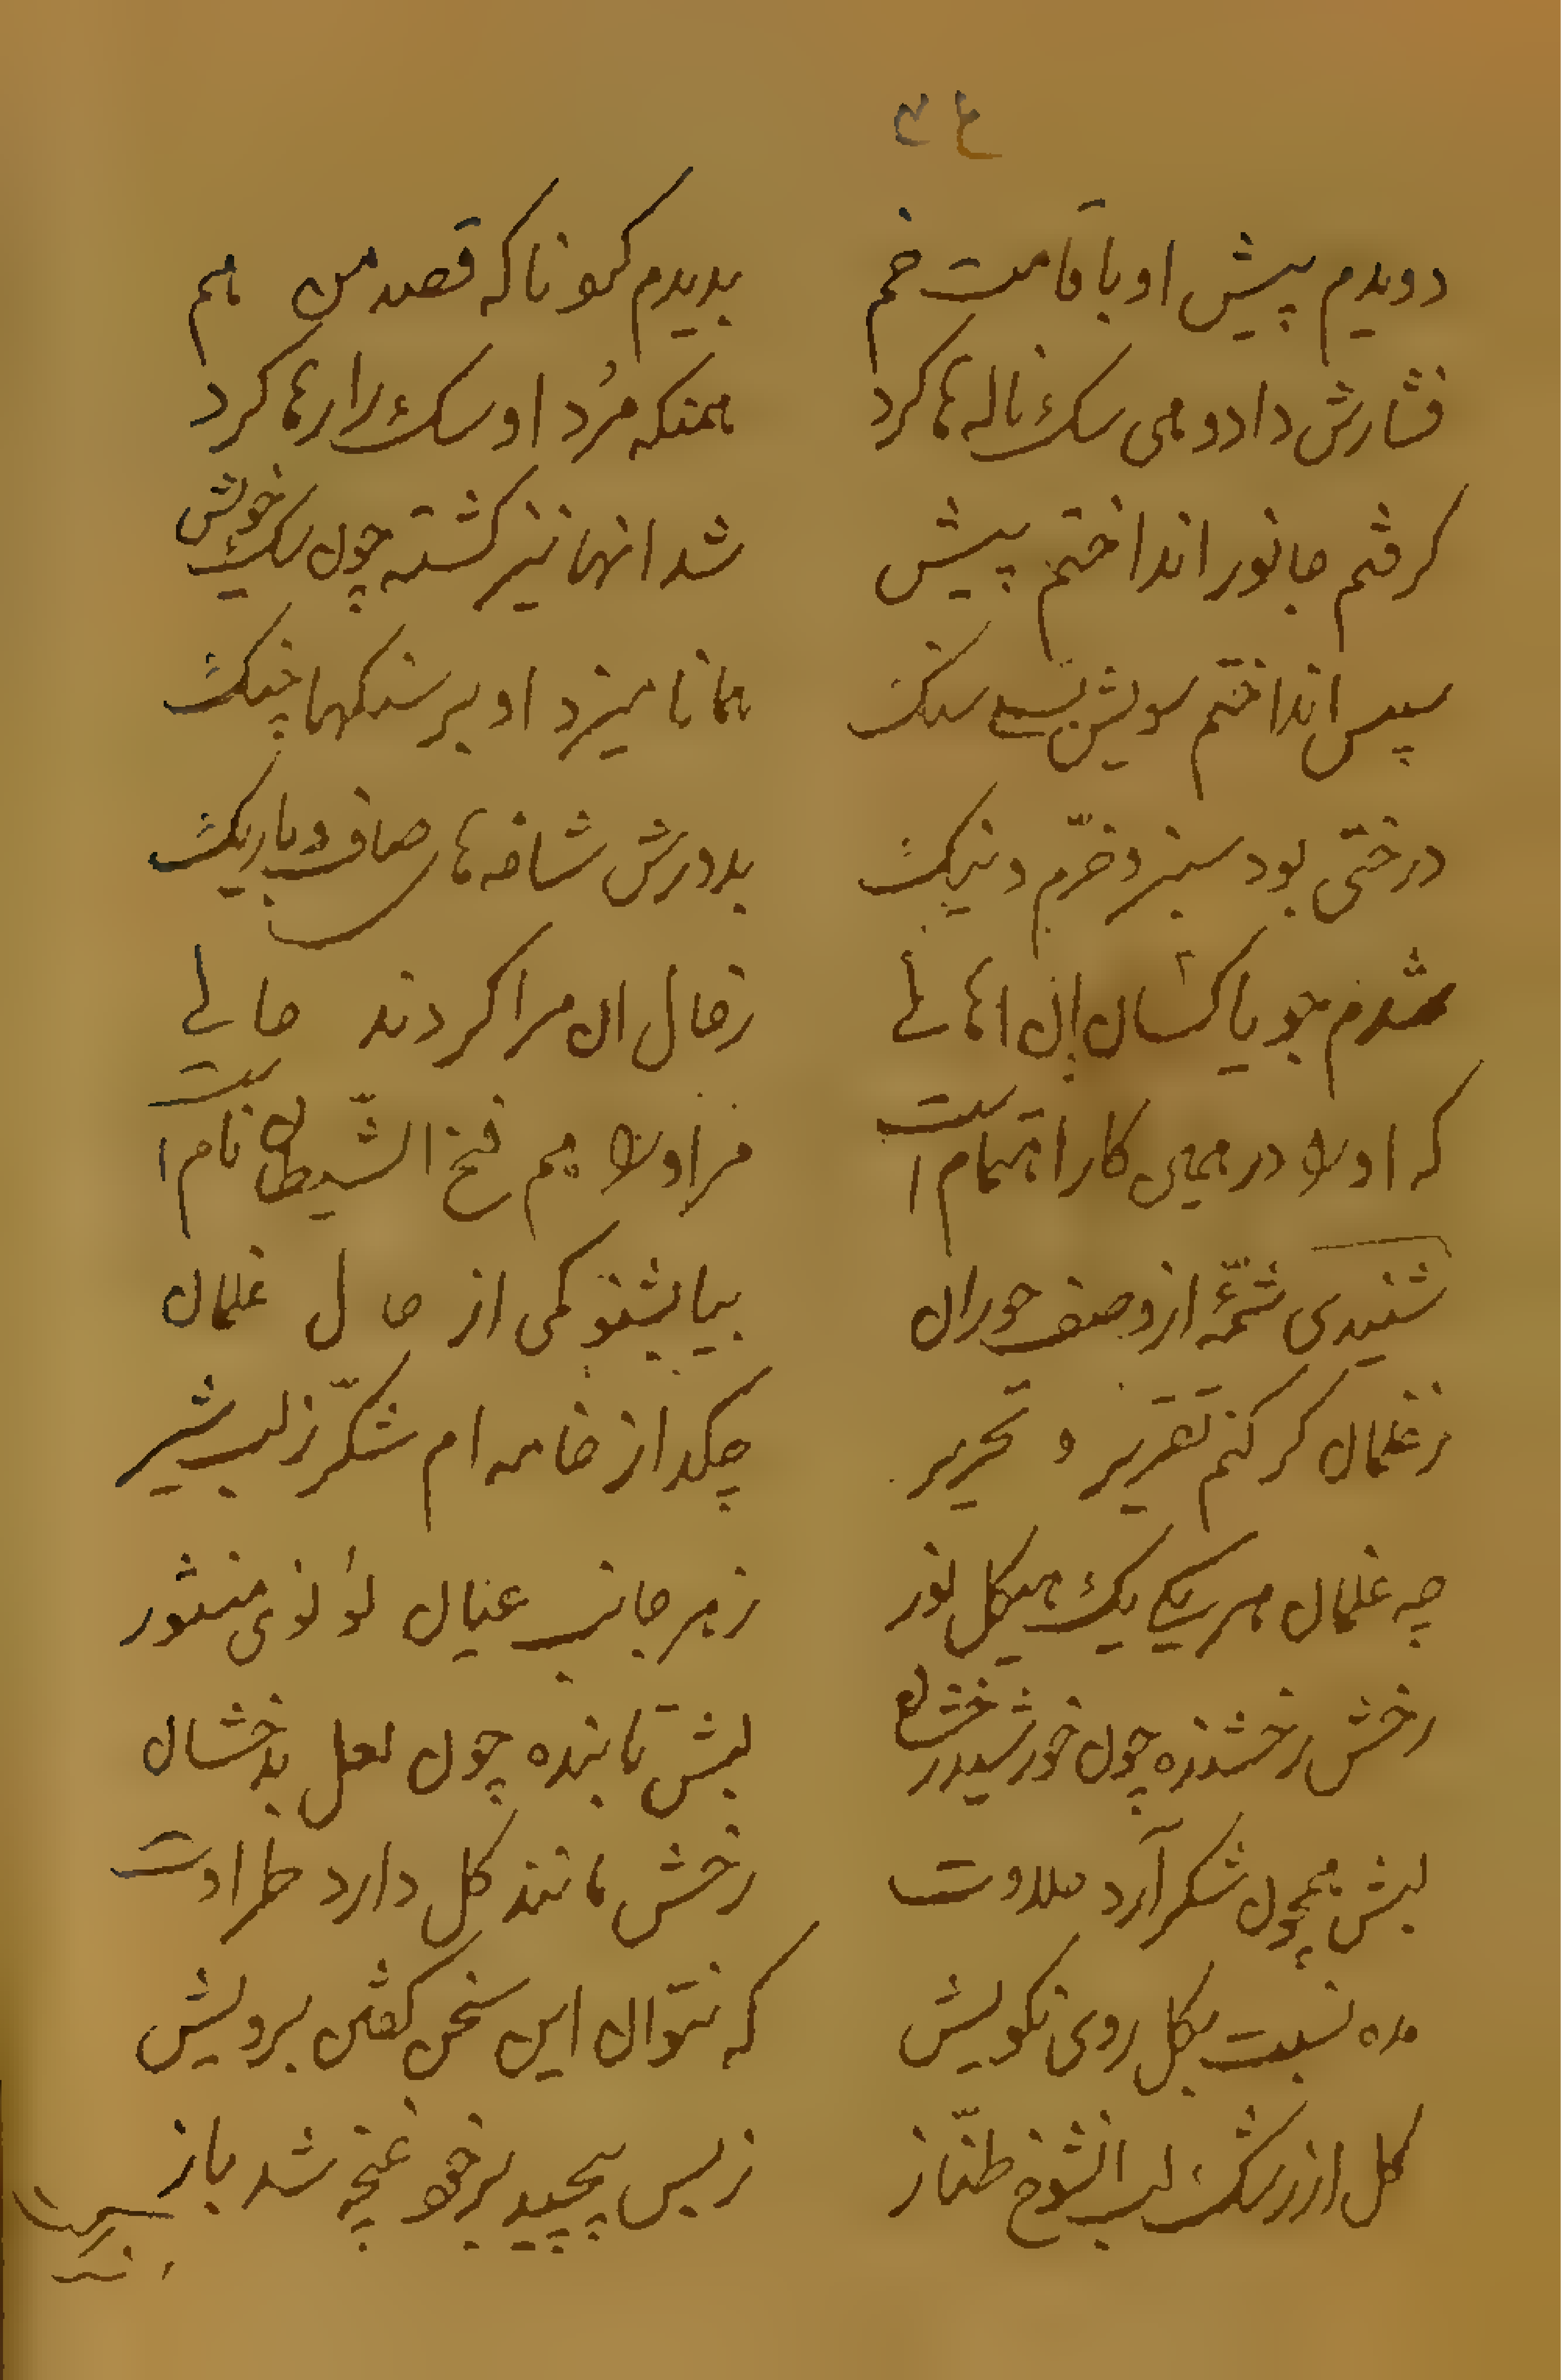 دویدم پیش او با قامت خم بدیدم کو نا که قصد من هم
فشارش داد و می سک ناله ها کرد همنکه مرُد او سک را رها کرد
کرفتم جانور انداختم پیش شد انها نیز کشته چون سک خویش
سپس انداختم سویش بسے سنک همانا میزد او بر سنکها چنک
درختی بود سبز و خرّم و نیک بد درش شاخه های صاف و باریک
شدم جویا کشان ان اهالے ز حال ان مرا کردند حالے
که اولا در همین کار اهتمام است مر او را هم فخ الشّیطان نام است
شنیدی شمّهٔ از وصف حوران بیا بشنو کمی از حال غلمان
ز غلمان کر کنم تقریر و تحریر چکد از خامه ام شکّر ز لب شیر
چه غلمان هر یکے یک هیکل نور ز هر جانب عیان لؤلؤی منثور
رخش رخشنده چون خورشید رخشان لبش تابنده چون لعل بدخشان
لبش همچون شکر آرد حلاوت رخش مانند کل دارد طراوت
مده نسبت بکل روی نکویش که نتوان این سخن کفتن برویش
کل از رشک لب انشوخ طنّاز ز بس پیچید بر خود غنچه شد باز